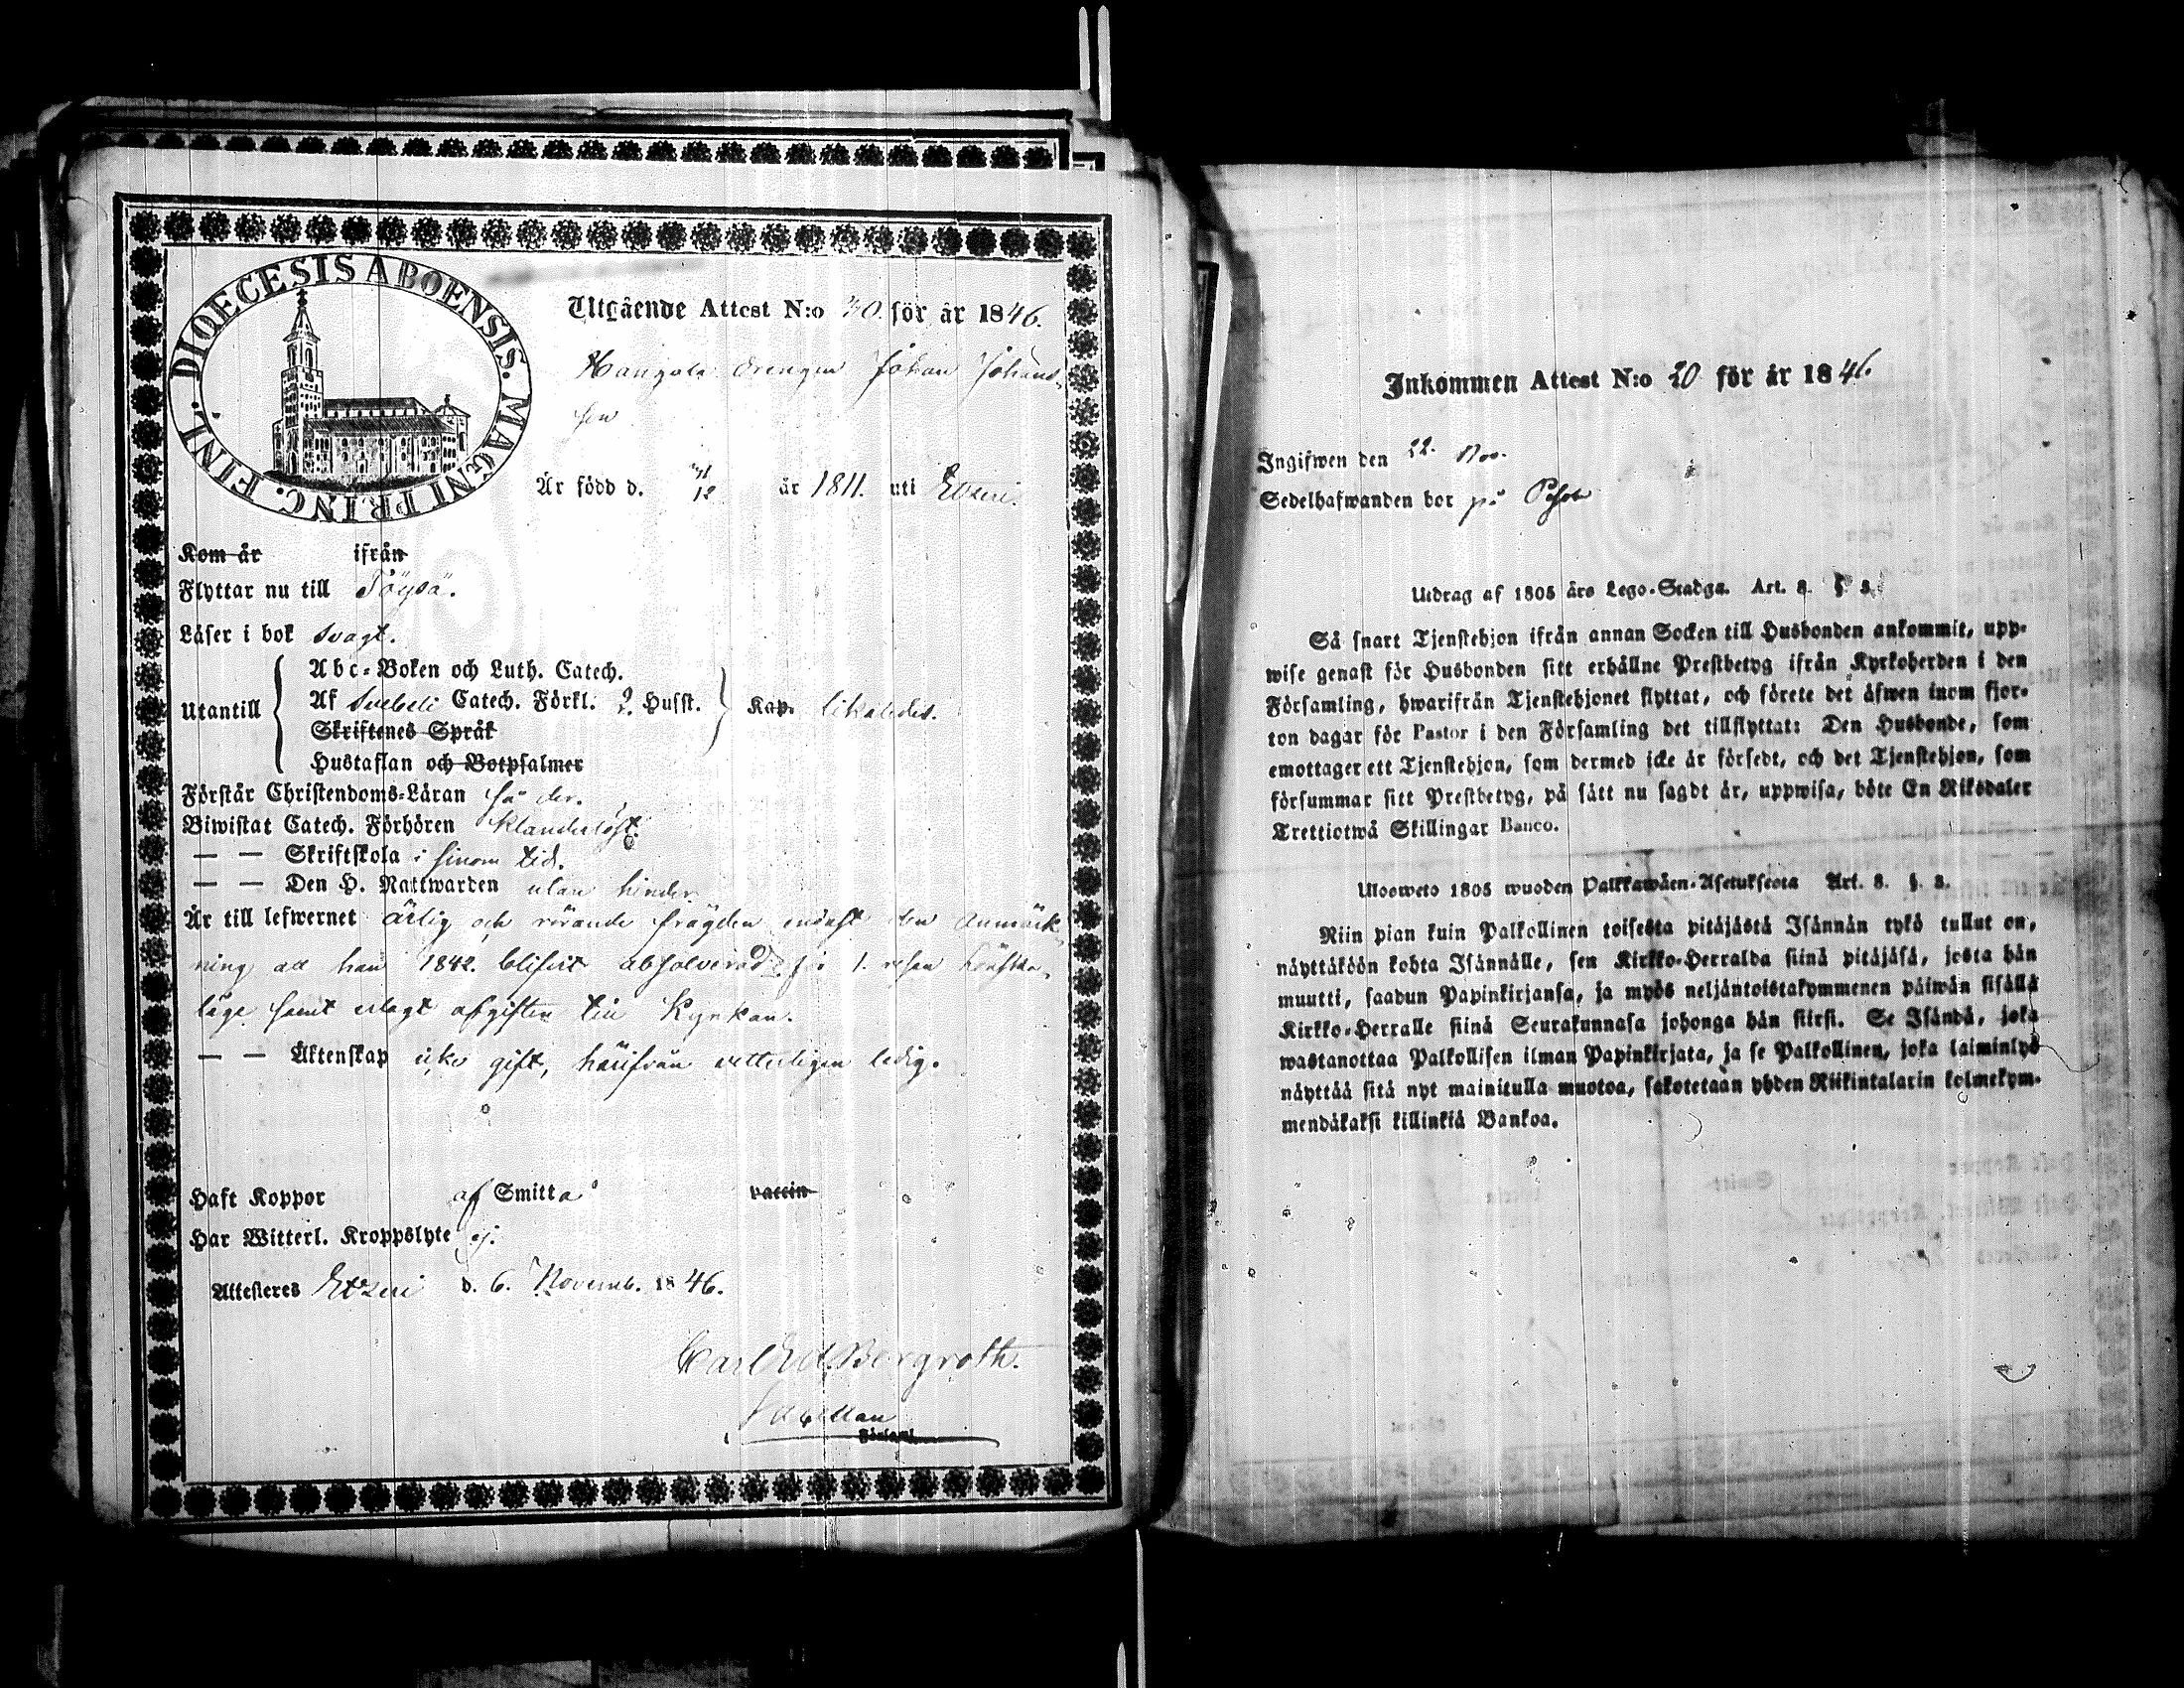 DIOECESIS ABOENSIS. MAGNI PRINC. FINL.
Utgående Attest N:o för år 1846.
drengen Johan Johans-
son
Är född d. 12 år 1811. uti Etseri.
Kom år ifrån
Flyttar nu till Töysä.
Läser i bok svagt.
Utantill
Abc-Boken och Luth. Catech.
Af Svebeli Catech. Förkl. 2. Hufst. Kap. likaledes.
Skriftenes Språk
Hustaflan och Botpsalmer
Förstår Christendoms-Läran så der.
Biwistat Catech. Förhören klanderlöst.
— — Skriftskola i sinom tid.
— — Den H. Nattwarden utan hinder.
Är till lefwernet ärlig och rörande frägden endast den anmärk-
ning att han 1842. blifvit absolverad för 1. resan
läge samt erlagt afgiften till Kyrkan.
— — Äktenskap icke gift, härifrån vetterligen ledig.
Haft Koppor af Smitta vaccin
Har Witterl. Kroppslyte ej.
Attesteras Etseri d. 6. Novemb. 1846.
Carl Ed. Bergroth.
Inkommen Attest N:o 20 för år 1846.
Ingifwen den 22. Nov.
Sedelhafwanden bor på
Utdrag af 1805 års Lego-Stadga. Art. 8. §. 3.
Så snart Tjenstehjon ifrån annan Socken till Husbonden ankommit, upp-
wise genast för Husbonden sitt erhållne Prestbetyg ifrån Kyrkoherden i den
Församling, hwarifrån Tjenstehjonet flyttat, och förete det äfwen inom fjor-
ton dagar för Pastor i den Församling det tillflyttat: Den Husbonde, som
emottager ett Tjenstehjon, som dermed icke är försedt, och det Tjenstehjon, som
försummar sitt Prestbetyg, på sätt nu sagdt är, uppwisa, böte En Riksdaler
Trettiotwå Skillingar Banco.
Uloswets 1805 wuoden Palkkawäen-Asetuksesta Art. 8. §. 3.
Niin pian kuin Palkollinen toisesta pitäjästä Isännän tykö tullut on,
näyttäköön kohta Isännälle, sen Kirkko-Herralda siinä pitäjäsä, josta hän
muutti, saadun Papinkirjansa, ja myös neljäntoistakymmenen päiwän sisällä
Kirkko-Herralle siinä Seurakunnasa johonga hän siirsi. Se Isändä, joka
wastanottaa Palkollisen ilman Papinkirjata, ja se Palkollinen, joka laiminlyö
näyttää sitä nyt mainitulla muotoa, sakotetaan yhden Riikintalarin kolmekym-
mendäkaksi killinkiä Bankoa.